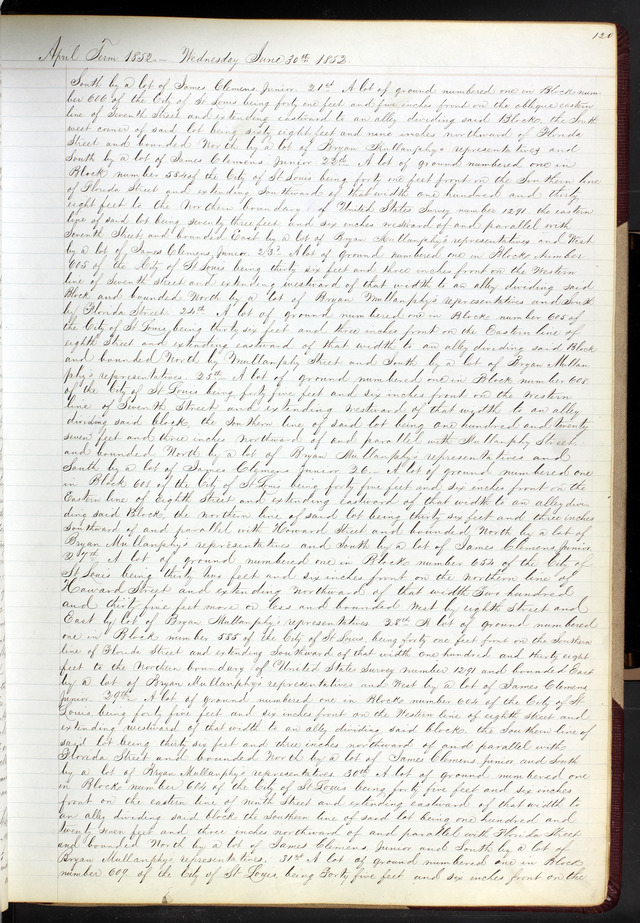 120
April Term 1852 - Wednesday June 30th 1852.
South by a lot of James Clemens Junior. 21st A lot of ground numbered one in Block num-
ber 606 of the City of St Louis being forty one feet and five inches front on the oblique eastern
line of Seventh Street and extending eastward to an alley dividing said Block, the South
west corner of said lot being sixty eight feet and nine inches northward of Florida
Street and bounded North by a lot of Bryan Mullanphy's representatives and
South by a lot of James Clemens Junior 22nd A lot of ground numbered one in
Block number 554 of the City of St Louis being forty one feet front on the Southern line
of Florida Street and extending Southward of that width one hundred and thirty
eight feet to the Northern boundary of United States Survey number 1291 the eastern
line of said lot being seventy three feet and six inches westward of and parallel with
Seventh Street and bounded East by a lot of Bryan Mullanphy's representatives and West
by a lot of James Clemens Junior. 23d A lot of ground numbered one in Block number
605 of the City of St Louis being thirty six feet and three inches front on the Western
line of Seventh Street and extending westward of that width to an alley dividing said
Block and bounded North by a lot of Bryan Mullanphy's representatives and South
by Florida Street. 24th A lot of ground numbered one in Block number 605 of
the City of St Louis being thirty six feet and three inches front on the Eastern line of
eighth Street and extending eastward of that width to an alley dividing said Block
and bounded North by Mullanphy Street and South by a lot of Bryan Mullan-
phy's representatives. 25th A lot of ground numbered one in Block number 608
of the City of St Louis being forty five feet and six inches front on the western
line of Seventh Street and extending westward of that width to an alley
dividing said block, the Southern line of said lot being one hundred and twenty
seven feet and three inches northward of and parallel with Mullanphy Street
and bounded North by a lot of Bryan Mullanphy's representatives and
South by a lot of James Clemens Junior 26 A lot of ground numbered one
in Block 608 of the City of St Louis being forty five feet and six inches front on the
Eastern line of eighth Street and extending eastward of that width to an alley divi-
ding said Block, the northern line of said lot being thirty six feet and three inches
Southward of and parallel with Howard Street and bounded North by a lot of
Bryan Mullanphy's representatives and South by a lot of James Clemens Junior
27th A lot of ground numbered one in Block number 654 of the City of
St Louis being thirty two feet and six inches front on the northern line of
Howard Street and extending northward of that width Two hundred
and thirty five feet more or less and bounded West by eighth Street and
East by lot of Bryan Mullanphy's representatives. 28th A lot of ground numbered
one in Block number 555 of the City of St Louis, being forty one feet front on the Southern
line of Florida Street and extending Southward of that width one hundred and thirty eight
feet to the Northern boundary of United States Survey number 1291 and bounded East
by a lot of Bryan Mullanphy's representatives and West by a lot of James Clemens
Junior. 29th A lot of ground numbered one in Block number 604 of the City of St
Louis, being forty five feet and six inches front on the Western line of eighth Street and
extending westward of that width to an ally dividing said block the Southern line of
said lot being thirty six feet and three inches northward of and parallel with
Florida Street and bounded North by a lot of James Clemens, junior and South
by a lot of Bryan Mullanphy's representatives 30th A lot of ground numbered one
in Block number 604 of the City of St Louis being forty five feet and six inches
front on the eastern line of ninth Street and extending eastward of that width to
an ally dividing said block the Southern line of said lot being one hundred and
Twenty seven feet and three inches northward of and parallel with Florida Street
and bounded North by a lot of James Clemens, junior and South by a lot of
Bryan Mullanphy's representatives; 31st A lot of ground numbered one in Block
number 609 of the City of St Louis being Forty five feet and six inches front on the